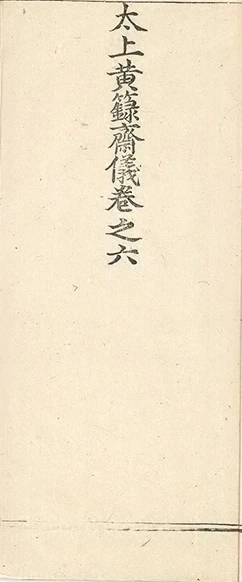 太上黄籙齋儀卷之六